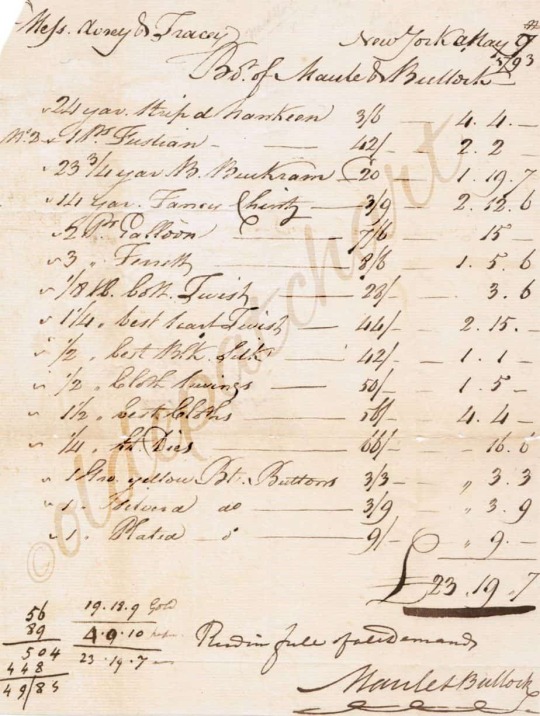 Mess. & Tracey New York May 9 1793
Bot. of Maule & Bullock
24 yar. Strip'd Nankeen 3/6 — 4. 4. —
1 Ps. Fustian — 42/ — 2. 2 —
23 3/4 yar B. Buckram 20 — 1. 19. 7
14 yar. Fancy Chintz 3/9 — 2. 12. 6
2 Ps Galloon 7/6 — 15 —
3 „ Ferrett 8/6 — 1. 5. 6
1/8 lb. Twist 28/ — 3. 6
1 1/4 „ best Twist 44/ — 2. 15. —
1/2 „ best Blk. Silk 42/ — 1. 1 —
1/2 „ Cloth 50/ — 1. 5 —
1 1/2 „ best Cloths 56/ — 4. 4 —
1/4 „ Dies 66/ — 16. 6
1 Gro. yellow Bt. Buttons 3/3 — „ 3. 3
1 „ do 3/9 „ 3. 9
„ Plated do 9/ — „ 9. —
£23. 19. 7
56 19. 18. 9 Gold
89 4. 0. 10
504 23. 19. 7
448
49/85
in full of all demands
Maule & Bullock
©oldpatchart